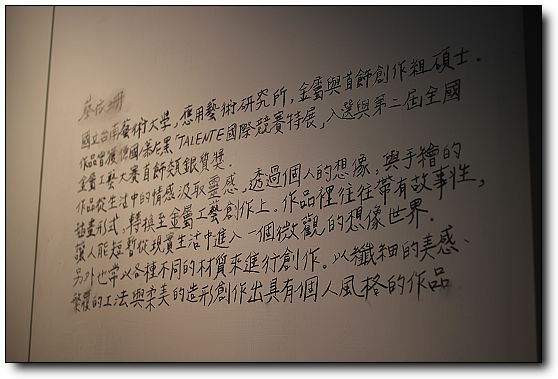 蔡依珊
國立台南藝術大學,應用藝術研究所,金屬與首飾創作組碩士.
作品曾獲德國慕尼黑「TALENTE國際競賽特展」入選與第二屆全國
金屬工藝大賽首飾類銀質獎.
作品從生活中的情感汲取靈感,透過個人的想像,與手繪的
插畫形式,轉換至金屬工藝創作上。作品裡往往帶有故事性,
讓人能短暫從現實生活中進入一個微觀的想像世界.
另外也常以各種不同的材質來進行創作。以纖細的美感、
繁複的工法與柔美的造形創作出具有個人風格的作品